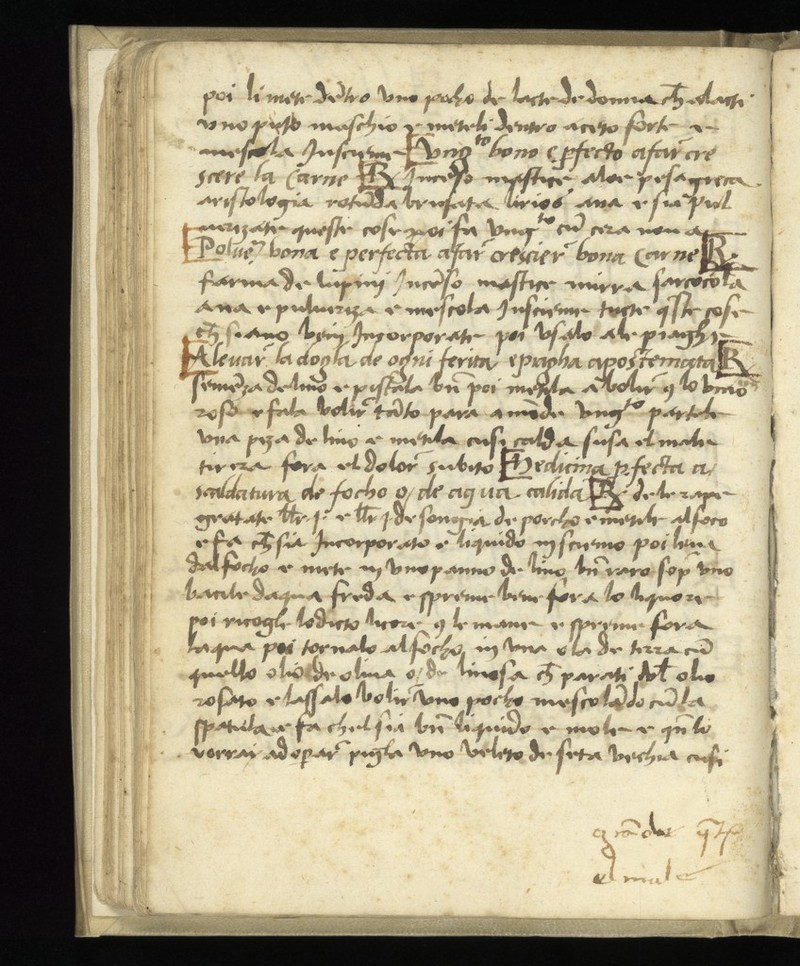 poi li mete dētro uno pocho de lacte de donna ch̄ alacti
uno puto maschio e meteli dentro aceto forte e
mescola Insieme Ung.to bono e p̄fecto afar cre
scere la Carne R Incēso mastice aloe pesagreca
aristologia rotūda brusata lirios ana e sia pul
uerizate queste cose poi fa ung.to cū cera noua
Poluer̄ bona e perfecta afar crescier̄ bona Carne R
farina de lupini Incēso mastice mirra sarcocola
ana e pulueriza e mescola Insieme tucte q̄ste cose
ch̄ siano ben Incorporate poi usalo ale piaghe
A leuar la dogla de ogni ferita e piagha apostemata R
semēza de lino e pistala bn̄ poi metila a bolir 9 lo unio
roso e fala bolir̄ tāto para amode ung.to partele
una peza de lino e metila cusi calda susa el male
tirera fora el dolor̄ subito Medicina p̄fecta a
scaldatura de focho o de aqua calida R de le rape
gratate lb̄r j e lb̄r j de songia de porcho e metile al foco
e fa ch̄ sia Incorporato e liquido insiemo poi leua
dal focho e mete in uno panno de lino bn̄ raro sop̄ uno
bacile daqua freda e spreme bene fora lo liquore
poi ricogle lo dicto licore 9 le mane e spreme fora
laqua poi tornalo al focho in una ola de terra cū
quello olio de oliua o de linosa ch̄ parati dol olio
rosato e lassalo bolir̄ uno pocho mescolādo cū la
spatula e fa chel sia bn̄ liquido e mole e qn̄ lo
vorrai ad oparar̄ pigla uno veleto de seta vechia cusi
grāde q̄to
el male